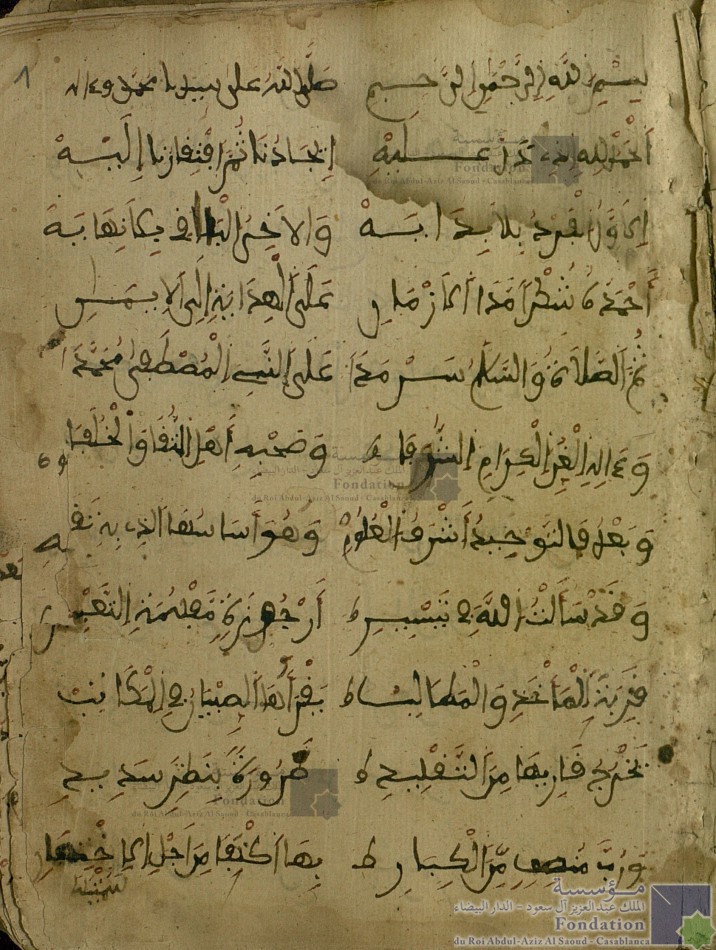 بسم الله الرحمن الرحيم صلى الله على سيدنا محمد وءاله
الحمد لله الذي دل عليه إيجادنا ثم افتقارنا إليه
الاول الفرد بلا بداية والاخر الباقي بلا نهاية
أحمده شكرا مدا الازمان على الهداية إلى الايمان
ثم الصلاة والسلام سرمدا على النبي المصطفى محمدا
وءاله الغر الكرام الشرفا وصحبه أهل التقا والخلفا
وبعد فالتوحيد أشرف العلوم وهو أساسها الذي به تقوم
وقد سألت الله في تيسير أرجوزة مفهمة التعبير
قريبة المأخذ والمطالب يقرأها الصبيان في المكاتب
تخرج قاريها من التقليد ضرورة بنظر سديد
ورب منصف من الكبار بها اكتفا من اجل الاختصار
مؤسسة
الملك عبد العزيز آل سعود - الدار البيضاء
Fondation
du Roi Abdul-Aziz Al Saoud - Casablanca